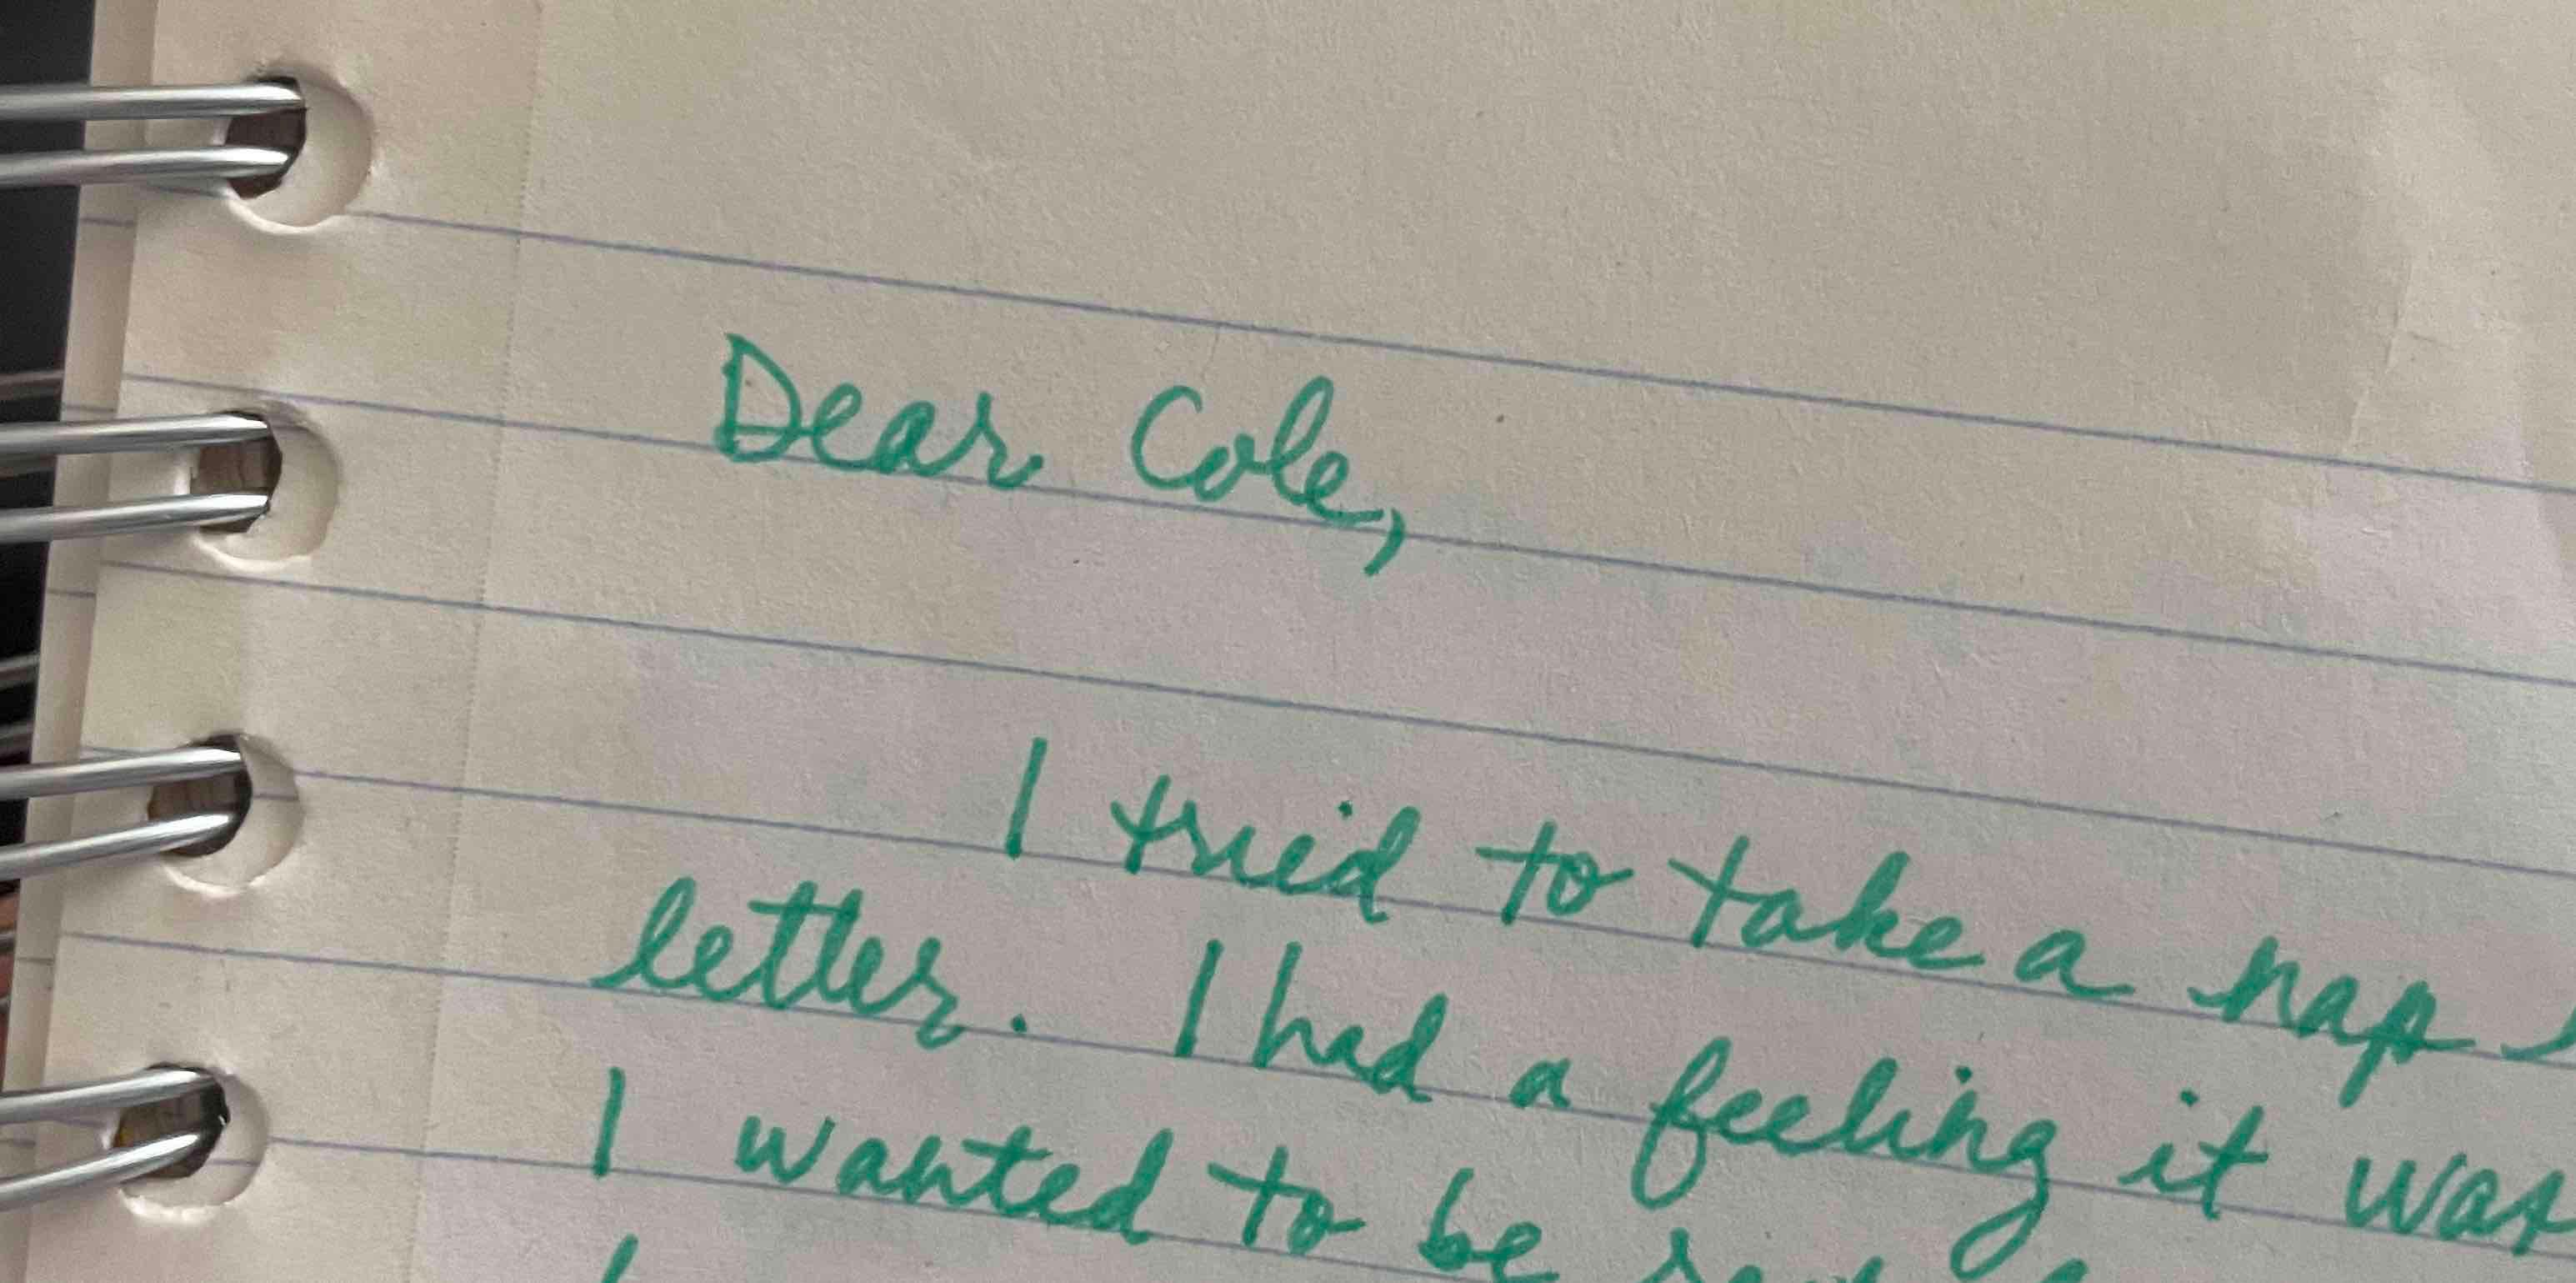 Dear Cole,
I tried to take a nap
letter. I had a feeling it was
I wanted to be